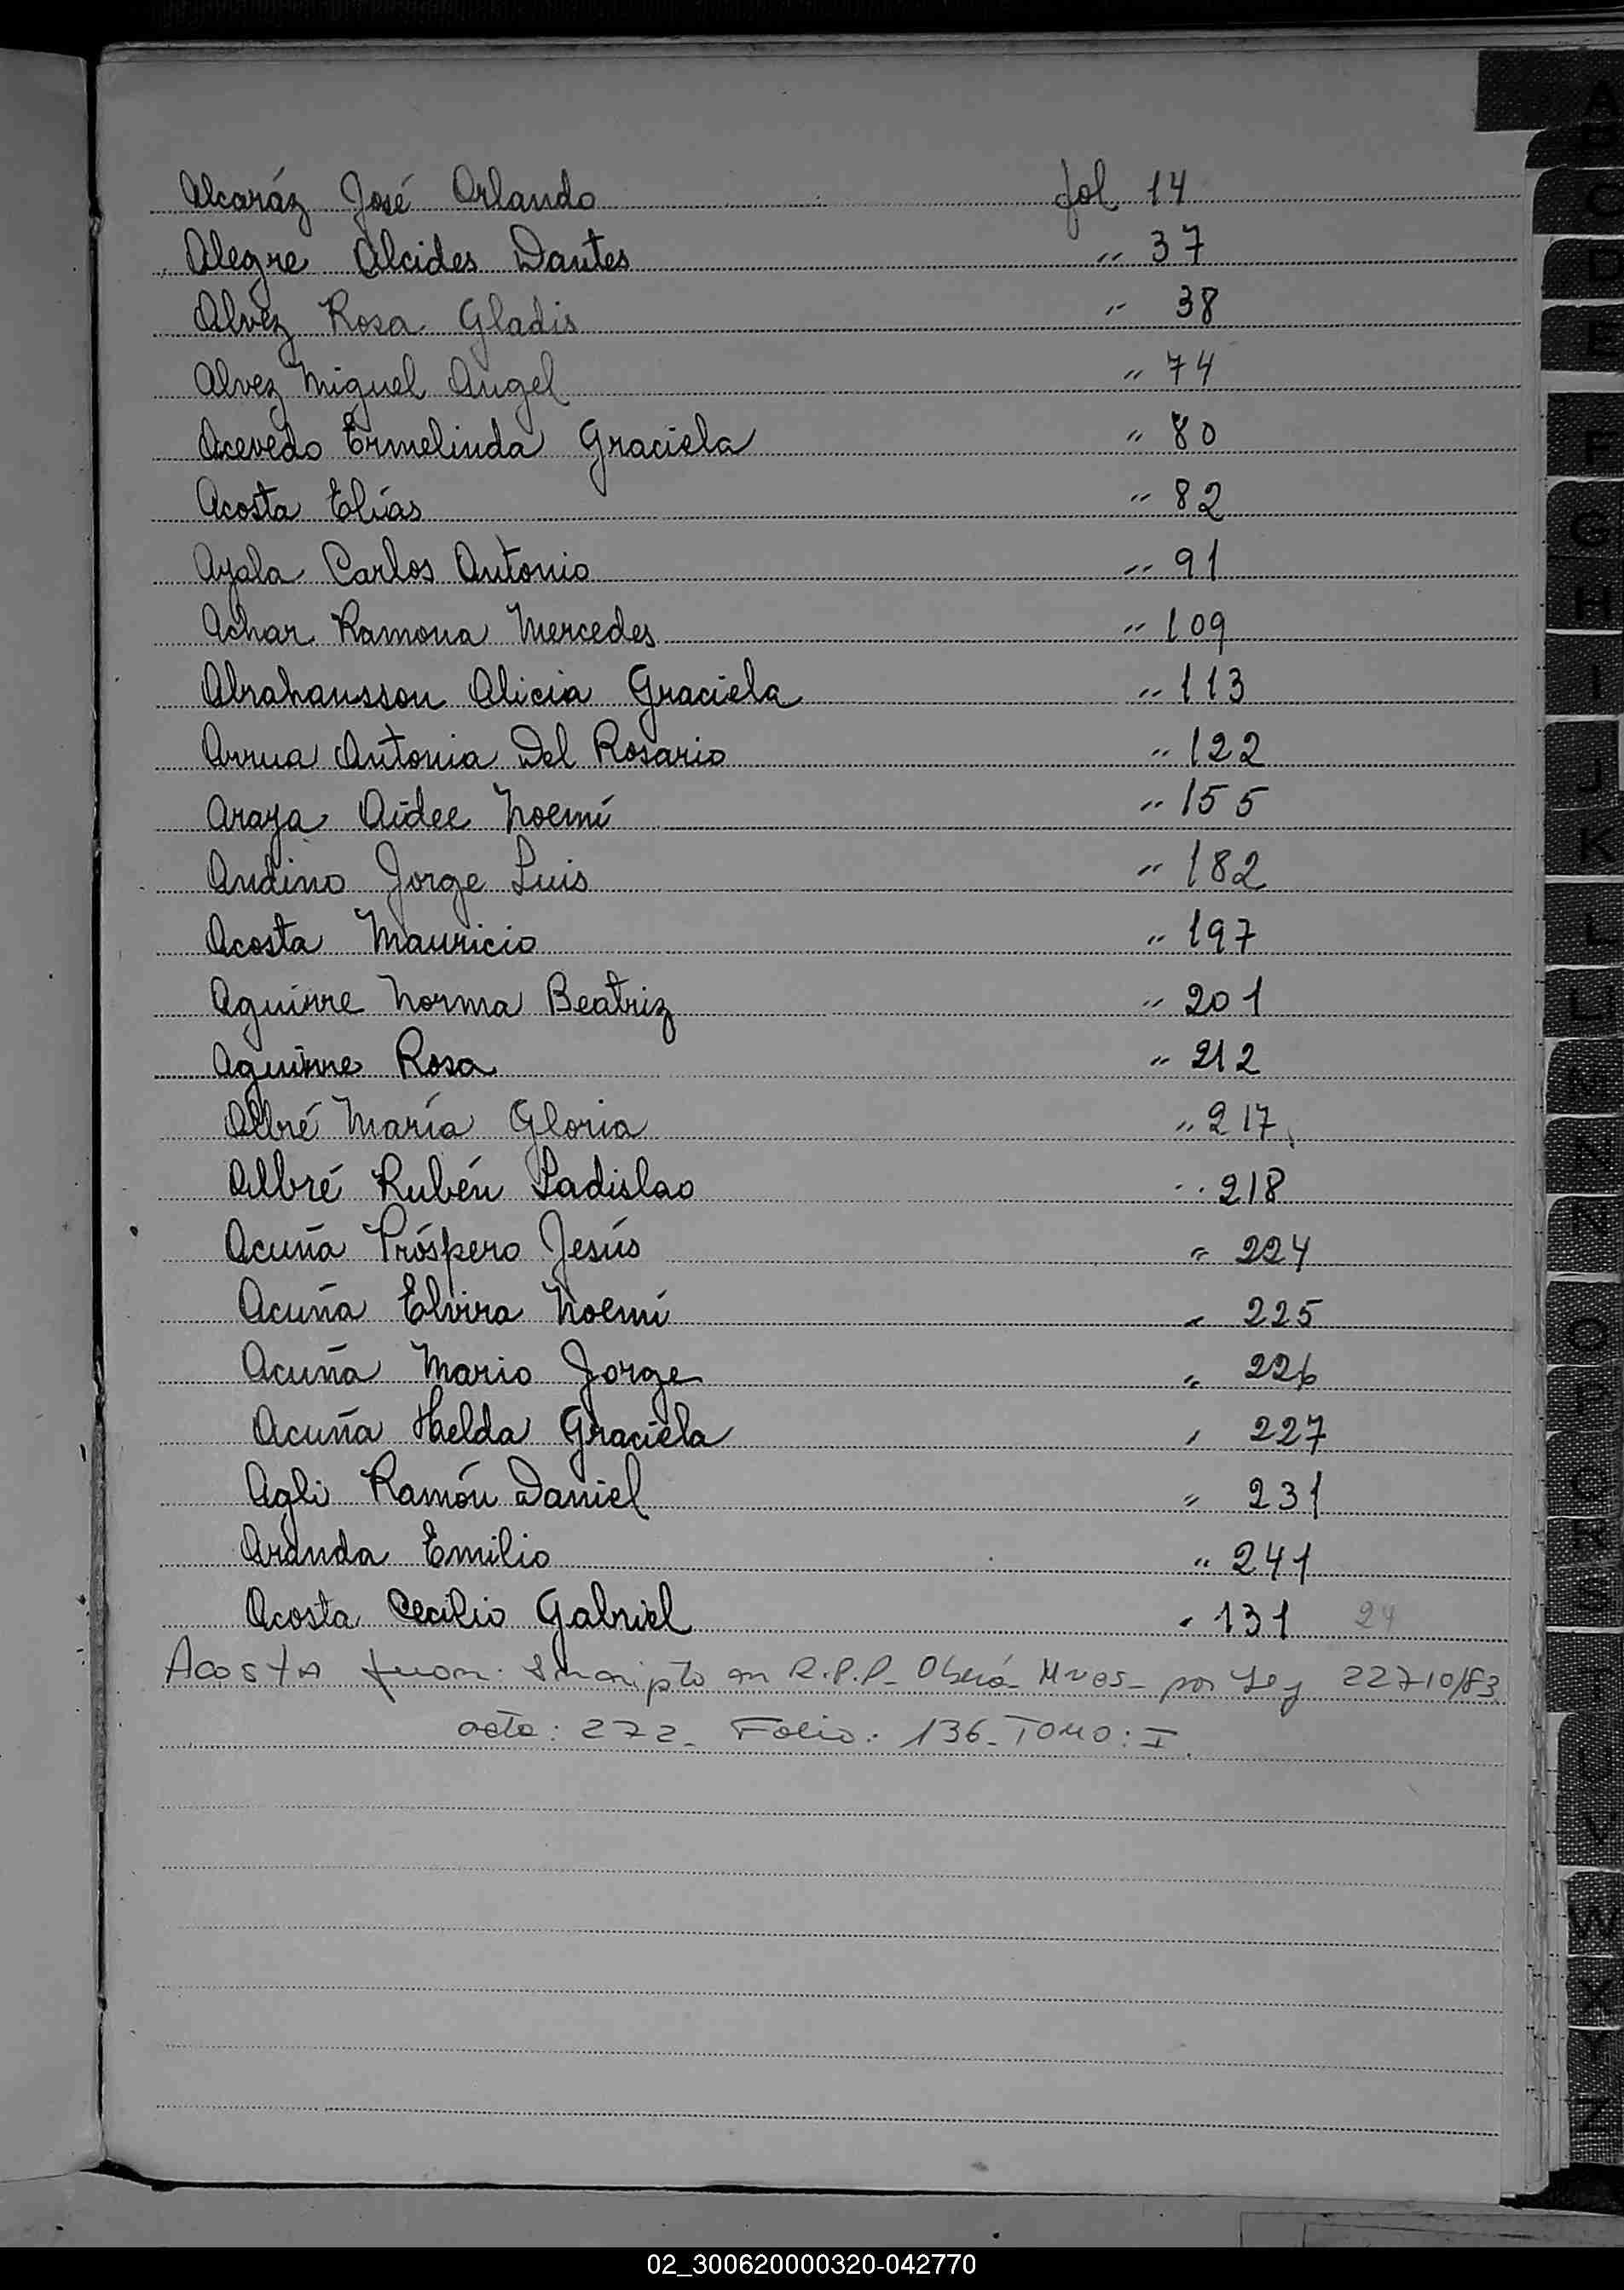 Alcaráz José Orlando fol 14
Alegre Alcides Dantes " 37
Alvez Rosa Gladis " 38
Alvez Miguel Angel " 74
Acevedo Ermelinda Graciela " 80
Acosta Elías " 82
Ayala Carlos Antonio " 91
Achar Ramona Mercedes " 109
Abrahansson Alicia Graciela " 113
Arrua Antonia Del Rosario " 122
Araya Aidee Noemí " 155
Andino Jorge Luis " 182
Acosta Mauricio " 197
Aguirre Norma Beatriz " 201
Aguirre Rosa " 212
Albré María Gloria " 217
Albré Rubén Ladislao " 218
Acuña Próspero Jesús " 224
Acuña Elvira Noemí " 225
Acuña Mario Jorge " 226
Acuña Helda Graciela " 227
Agli Ramón Daniel " 231
Aranda Emilio " 241
Acosta Cecilio Gabriel " 131 24
Acosta Juan: Inscripto en R.P.P- Oberá- Mnes- por Ley 22710/83
acta: 272- Folio: 136- TOMO: I.
A
B
C
D
E
F
G
H
I
J
K
L
LL
M
N
Ñ
O
P
Q
R
S
T
U
V
W
X
Y
Z
02_300620000320-042770